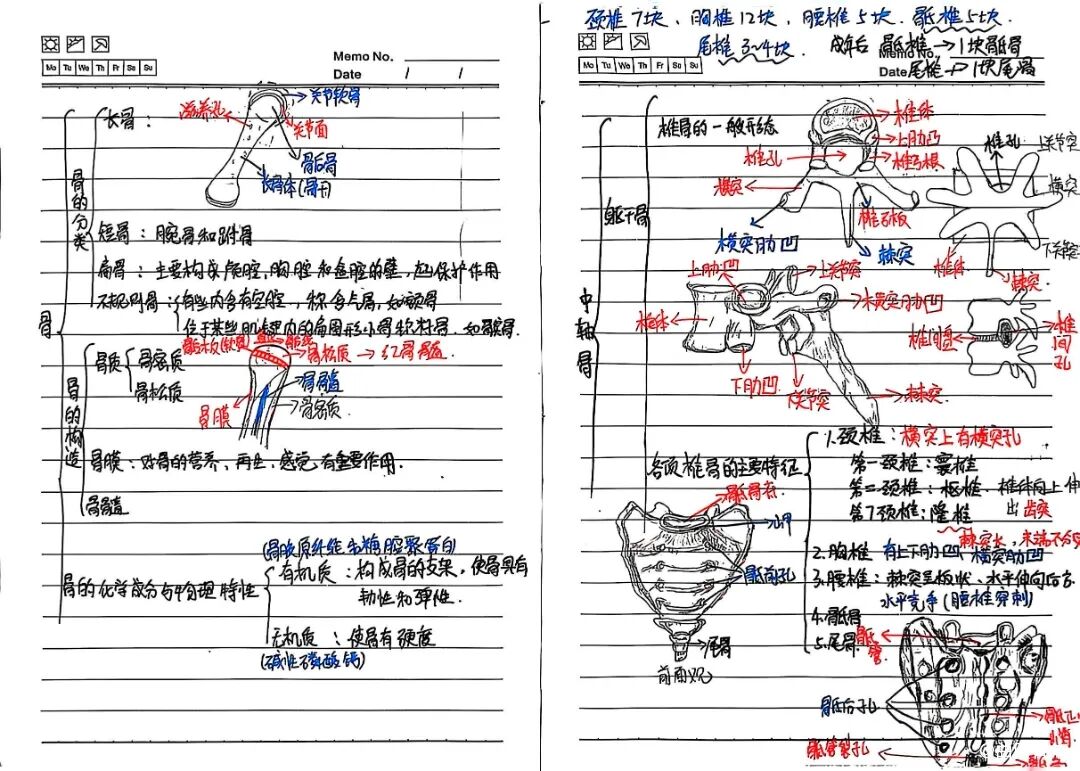 Memo No.
Mo Tu We Th Fr Sa Su
Date / /
骨
骨的分类
长骨：
滋养孔
关节软骨
关节面
骨骺骨
长骨体(骨干)
短骨：腕骨和跗骨
扁骨：主要构成颅腔，胸腔和盆腔的壁，起保护作用
不规则骨：有些内含有空腔，称含气骨，如颌骨
位于某些肌腱内的扁圆形小骨称籽骨，如髌骨.
骨的构造
骨质
骨密质
骨松质
骨松质→红骨髓
骨髓
骨密质
骨膜
骨膜：对骨的营养，再生，感觉有重要作用.
骨骨髓
骨的化学成分与物理特性
(骨胶原纤维和糖胺聚蛋白)
有机质：构成骨的支架，使骨具有
韧性和弹性.
无机质：使骨有硬度
(碱性磷酸钙)
颈椎7块、胸椎12块，腰椎5块.骶椎5块.
尾椎3~4块. 成年后 骶椎→1块骶骨
Memo No.
Mo Tu We Th Fr Sa Su
Date 尾椎→1块尾骨
中轴骨
躯干骨
椎骨的一般形态
椎体
上肋凹
椎弓根
椎孔
横突
椎弓板
横突肋凹
棘突
椎孔
上关节突
横突
下关节突
椎体
棘突
上肋凹
上关节突
横突肋凹
椎体
下肋凹
下关节突
棘突
椎间盘
椎间孔
各项椎骨的主要特征
1.颈椎：横突上有横突孔
第一颈椎：寰椎
第二颈椎：枢椎.椎体向上伸
出 齿突
第7颈椎：隆椎
棘突长，末端不分
2.胸椎 有上下肋凹 横突肋凹
3.腰椎：棘突呈板状，水平伸向后方
水平竞争(腰椎穿刺)
4.骶骨
5.尾骨.
骶骨底
岬
骶前孔
尾骨
前面观
骶管
骶后孔
骶管裂孔